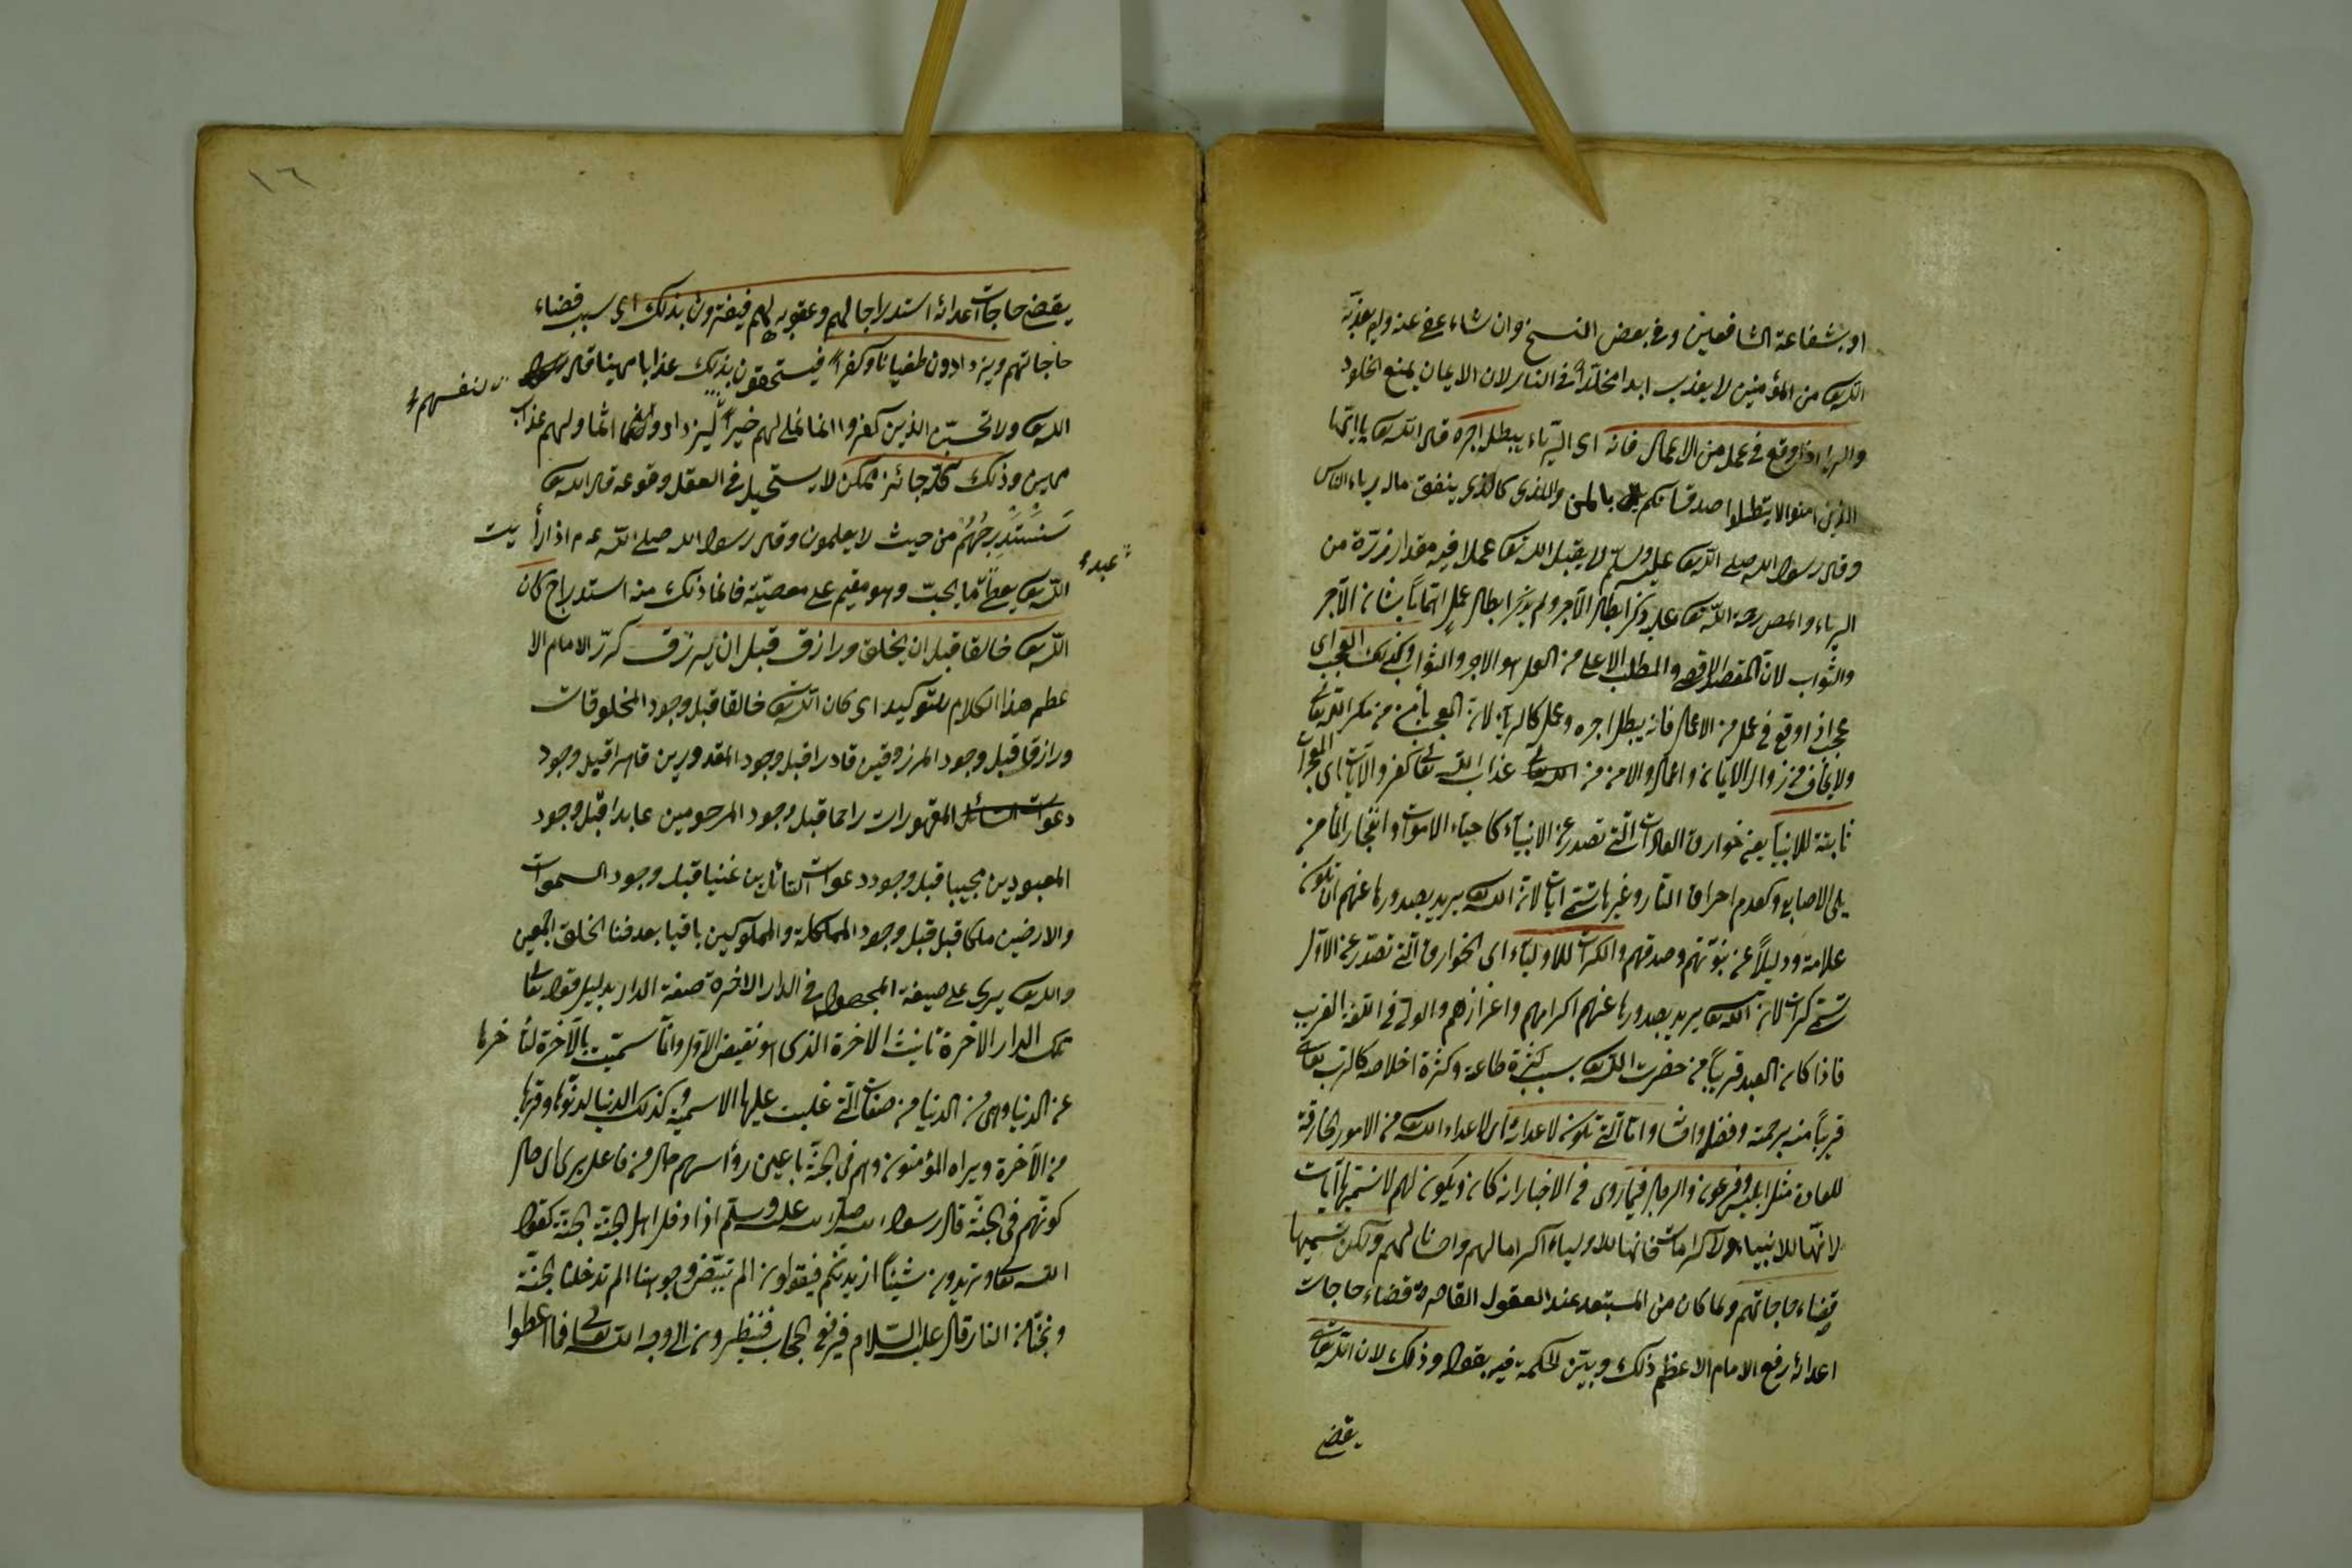 او بشفاعة الشافعين وفى بعض النسخ وان شاء عفى عنه ولم يعذبه
الله تع من المؤمنين لا يعذب ابدا مخلدا فى النار لان الايمان يمنع الخلود
والريا اذا وقع فى عمل من الاعمال فانه اى الرياء يبطل اجره قال الله تع يا ايها
الذين امنوا لا تبطلوا صدقاتكم بالمن والاذى كالذى ينفق ماله رياء الناس
وقال رسول الله صلى الله تع عليه وسلم لا يقبل الله تع عملا فيه مقدار ذرة من
الرياء والمص رحمة الله تع عليه ذكر ابطال الاجر ولم يذكر ابطال عمل اهتماما بشان الاجر
والثواب لان المقصد الاقصى والمطلب الاعلى من العمل هو الاجر والثواب وكذلك العجب اى
عجب اذا وقع فى عمل من الاعمال فانه يبطل اجره وعمله كالرياء لان العجب يأمن من مكر الله تعالى
ولا يخاف من زوال الايمان واعماله والامن من عذاب الله تعالى كفر والآيات اى المعجزات
ثابتة للانبياء يعنى خوارق العادات التى تصدر عن الانبياء كاحياء الاموات وانفجار الماء من
بين الاصابع وكعدم احراق النار وغيرها تسمى آيات لان الله تع يريد بصدورها عنهم ان تكون
علامة ودليلاً عن نبوتهم وصدقهم والكرامات للاولياء اى الخوارق التى تصدر عن الاولياء
تسمى كرامات لان الله تع يريد بصدورها عنهم اكرامهم واعزازهم والولى فى اللغة القريب
فاذا كان العبد قريباً من حضرت الله تع بسبب كثرة طاعة وكثرة اخلاصه كان الرب تعالى
قريباً منه برحمته وفضله واحسانه واما التى تكون لاعدائه اى لاعداء الله تع من الامور الخارقة
للعادة مثل ابليس وفرعون والدجال فيما روى فى الاخبار انه كان ويكون لهم لا نسميها آيات
لانها للانبياء ولا كرامات فانها للاولياء اكراما لهم واحسانا لهم ولكن نسميها
قضاء حاجاتهم ولما كان من المستبعد عند العقول القاصرة قضاء حاجات
اعدائه رفع الامام الاعظم ذلك وبيّن الحكمة فيه بقوله وذلك لان الله تعالى
يقضى
١٦
يقضى حاجات اعدائه استدراجا لهم وعقوبة لهم فيغترون بذلك اى بسبب قضاء
حاجاتهم ويزدادون طغيانا وكفرا فيستحقون بذلك عذابا مهينا قال
لانفسهم
الله تع ولا تحسبن الذين كفروا انما نملى لهم خير ليزدادوا اثما ولهم عذاب
مهين وذلك كله جائز ممكن لا يستحيل فى العقل وقوعه قال الله تع
سَنَسْتَدْرِجُهُمْ من حيث لا يعلمون وقال رسول الله صلى الله ع م اذا رأيت
عبده
الله تع يعطى ما يحب وهو مقيم على معصيته فانما ذلك منه استدراج كان
الله تع خالقا قبل ان يخلق ورازق قبل ان يرزق كرّر الامام الا
عظم هذا الكلام للتوكيد اى كان الله تع خالقا قبل وجود المخلوقات
ورازقا قبل وجود المرزوقين قادرا قبل وجود المقدورين قاهرا قبل وجود
المقهورات راحما قبل وجود المرحومين عابدا قبل وجود
المعبودين مجيبا قبل وجود دعوات القائلين غنيا قبل وجود السموات
والارضين ملكا قبل قبل وجود المملكة والمملوكين باقيا بعد فنا الخلق اجمعين
والله تع يرى على صيغة المجهول فى الدار الاخرة صفة الدار بدليل قوله تعالى
تلك الدار الاخرة تانيث الاخرة الذى هو نقيض الاول وانما سميت بالآخرة لتأخرها
عن الدنيا وهى من الدنيا من صفات التى غلبت عليها الاسمية وكذلك الدنيا لدنوها وقربها
من الآخرة ويراه المؤمنون وهم فى الجنة باعين رؤسهم حال من فاعل يرى اى حال
كونهم فى الجنة قال رسول الله صلى الله عليه وسلم اذا دخل اهل الجنة الجنة يقول
الله تعالى تريدون شيئاً ازيدكم فيقولون الم تبيض وجوهنا الم تدخلنا الجنة
ونجتنا من النار قال عليه السلام فيرفع الحجاب فينظرون الى وجه الله تعالى فما اعطوا